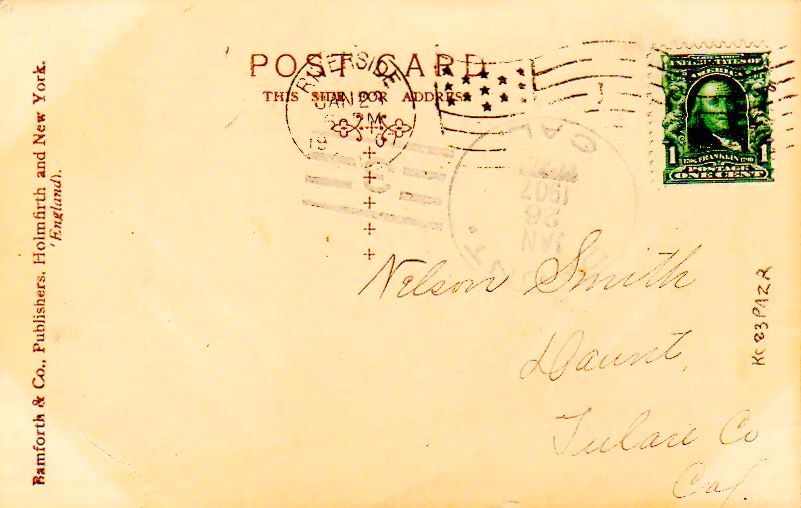 POST CARD
THIS SIDE FOR ADDRESS
RIVERSIDE
JAN 2
PM
UNITED STATES OF
AMERICA
1 1790 FRANKLIN 1790 1
POSTAGE
ONE CENT
CAL
JAN
26
1907
Nelson Smith
Daunt,
Tulare Co
Cal.
Bamforth & Co., Publishers, Holmfirth and New York.
(England).
KC83PAZR